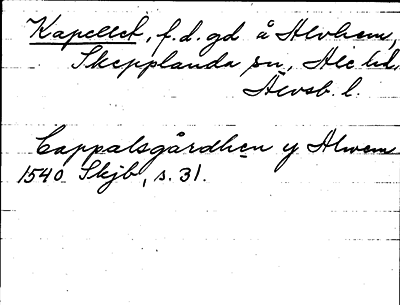 Kapellet, f.d. gd å Alvhem,
Skepplanda sn, Ale hd.
Älvsb. l.
Cappalsgårdhen y Alwem
1540 Skjb, s. 31.